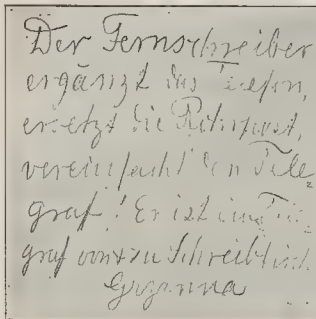 Der Fernschreiber
ergänzt das Telefon,
ersetzt die Rohrpost,
vereinfacht den Tele=
graf! Er ist ein Tele=
graf von zu Schreibtisch